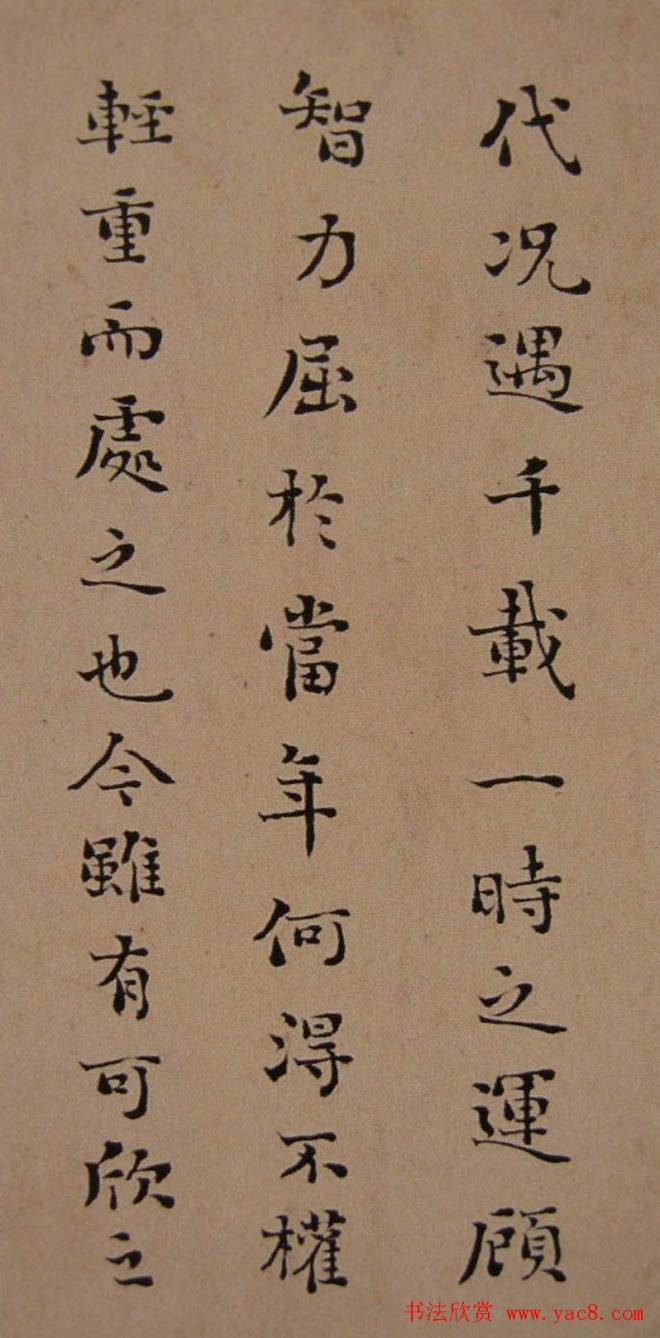 代況遇千載一時之運顧
智力屈於當年何得不權
輕重而處之也今雖有可欣之
书法欣赏 www.yac8.com